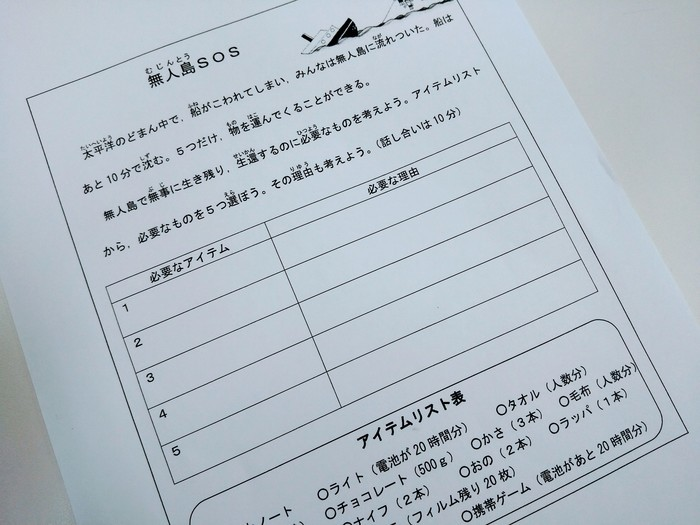 無人島SOS
むじんとう
太平洋のどまん中で，船がこわれてしまい，みんなは無人島に流れついた。船は
たいへいよう ふね なが
あと10分で沈む。5つだけ，物を運んでくることができる。
しず もの はこ
無人島で無事に生き残り，生還するのに必要なものを考えよう。アイテムリスト
ぶじ せいかん ひつよう
から，必要なものを5つ選ぼう。その理由も考えよう。（話し合いは10分）
えら りゆう
必要なアイテム 必要な理由
1
2
3
4
5
アイテムリスト表
ノート ○ライト（電池が20時間分） ○タオル（人数分）
○チョコレート（500g） ○かさ（3本） ○毛布（人数分）
ナイフ（2本） ○おの（2本） ○ラッパ（1本）
（フィルム残り20枚） ○携帯ゲーム（電池があと20時間分）